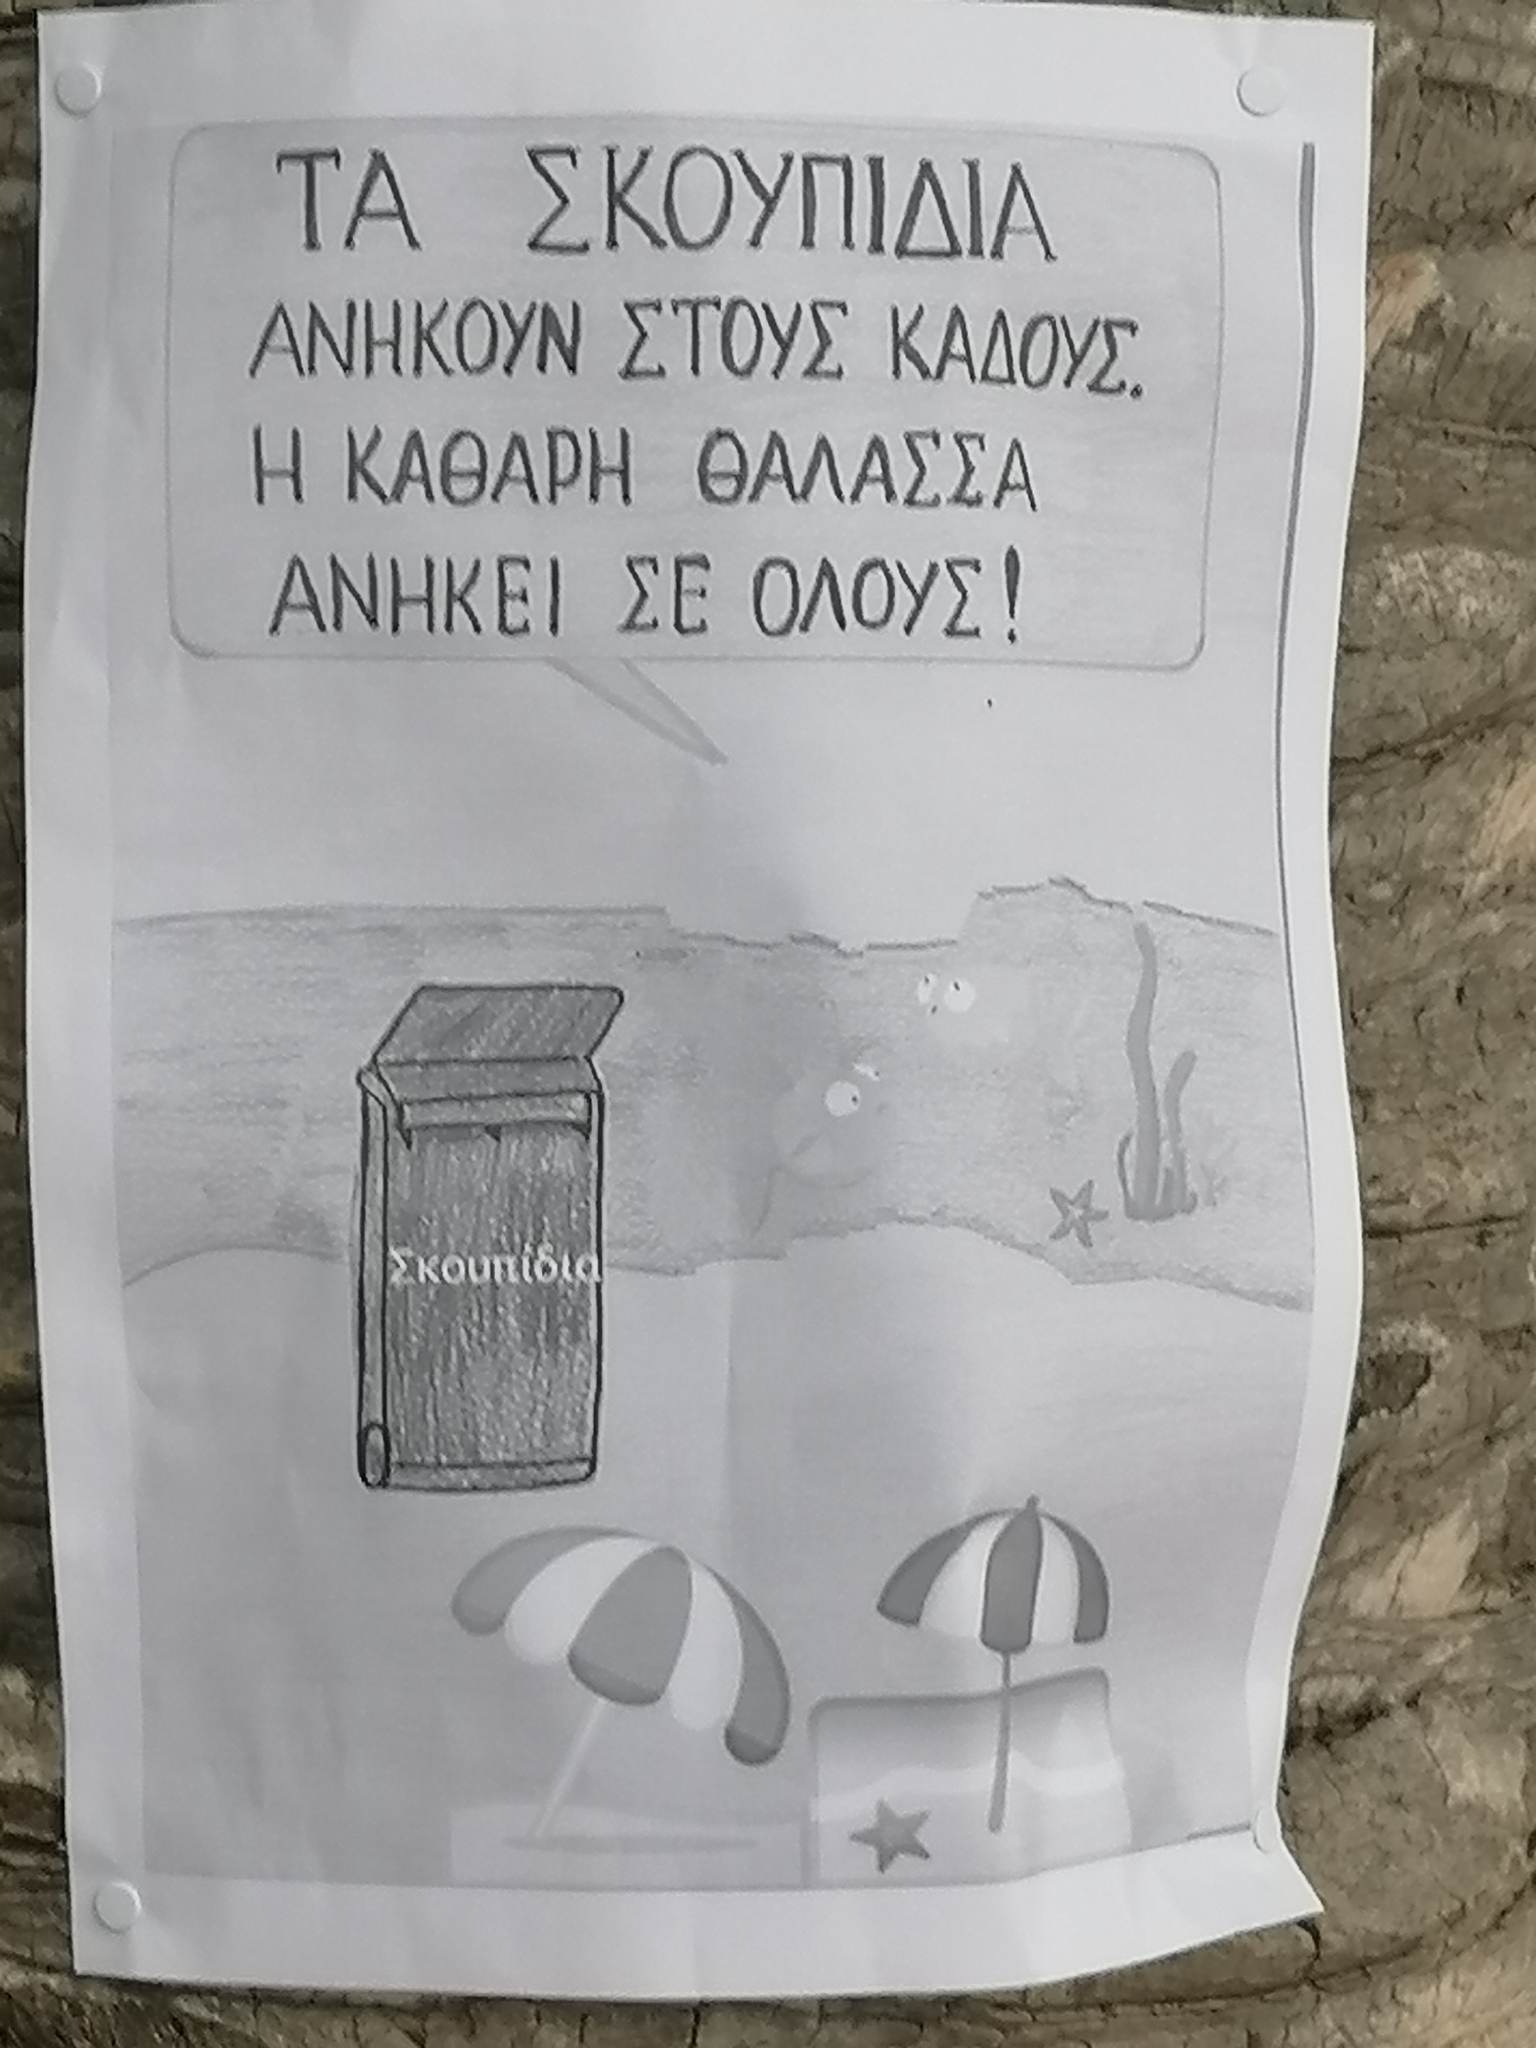 ΤΑ ΣΚΟΥΠΙΔΙΑ
ΑΝΗΚΟΥΝ ΣΤΟΥΣ ΚΑΔΟΥΣ.
Η ΚΑΘΑΡΗ ΘΑΛΑΣΣΑ
ΑΝΗΚΕΙ ΣΕ ΟΛΟΥΣ!
Σκουπίδια